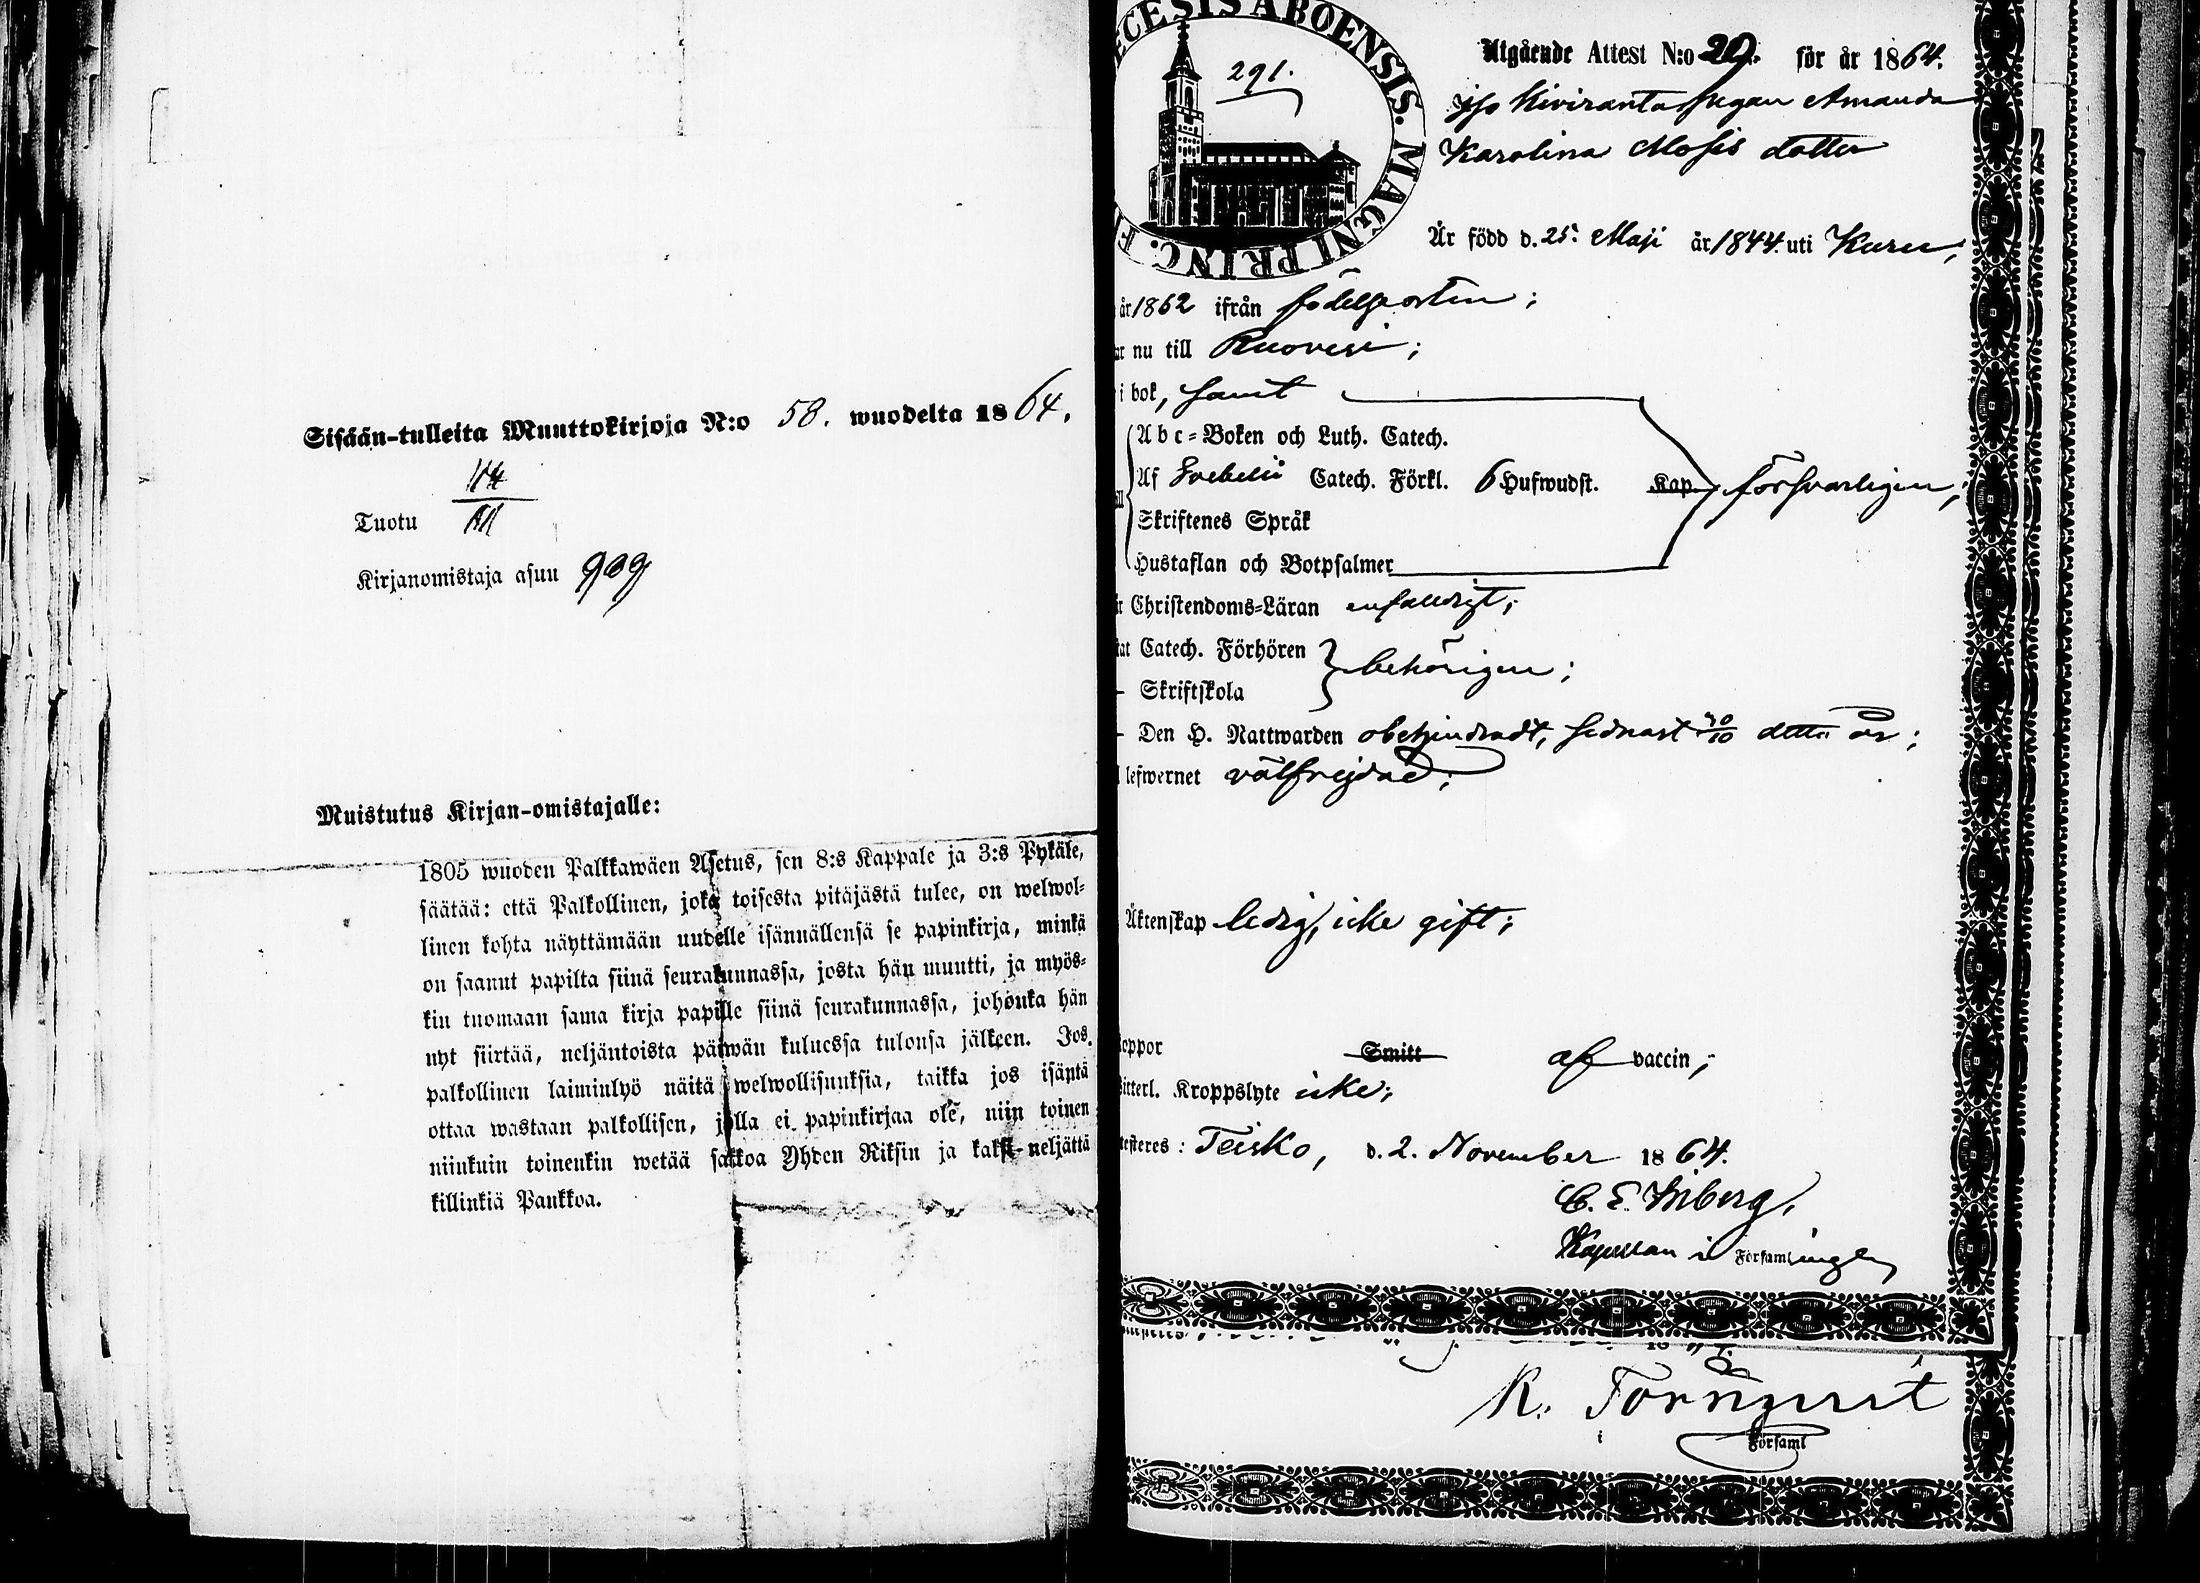 Sisään-tulleita Muuttokirjoja N:o 58. wuodelta 1864.
Tuotu
Kirjanomistaja asuu 909
Muistutus Kirjan-omistajalle:
1805 wuoden Palkkawäen Asetus, sen 8:s Kappale ja 3:s Pykäle,
säätää: että Palkollinen, joka toisesta pitäjästä tulee, on welwol-
linen kohta näyttämään uudelle isännällensä se papinkirja, minkä
on saanut papilta siinä seurakunnassa, josta hän muutti, ja myös-
kin tuomaan sama kirja papille siinä seurakunnassa, johonka hän
nyt siirtää, neljäntoista päiwän kuluessa tulonsa jälkeen. Jos
palkollinen laiminlyö näitä welwollisuuksia, taikka jos isäntä
ottaa wastaan palkollisen, jolla ei papinkirjaa ole, niin toinen
niinkuin toinenkin wetää sakkoa Yhden Riksin ja kaksi-neljättä
killinkiä Pankkoa.
ECESIS ABOENSIS. MAGNI PRINC. F
291.
Utgående Attest N:o 29. för år 1864.
Kiviranta pigan Amanda
Karolina Mosis dotter
Är född d. 25. Maji år 1844. uti Kuru,
år 1862 ifrån födelseorten;
nu till Ruovesi;
i bok, samt
Abc-Boken och Luth. Catech.
Af Svebelii Catech. Förkl. 6 Hufwudst. Kap. försvarligen,
Skriftenes Språk
Hustaflan och Botpsalmer
Christendoms-Läran enfaldigt;
Catech. Förhören behörigen;
- Skriftskola
- Den H. Nattwarden obehindradt, sednast detta år;
lefwernet välfrejdad;
Äktenskap ledig, icke gift;
oppor Smitt af vaccin,
itterl. Kroppslyte icke;
testeres: Teisko, d. 2. November 1864.
C. E.
Kapellan i Församlingen
R. Törnqvist
i Församl